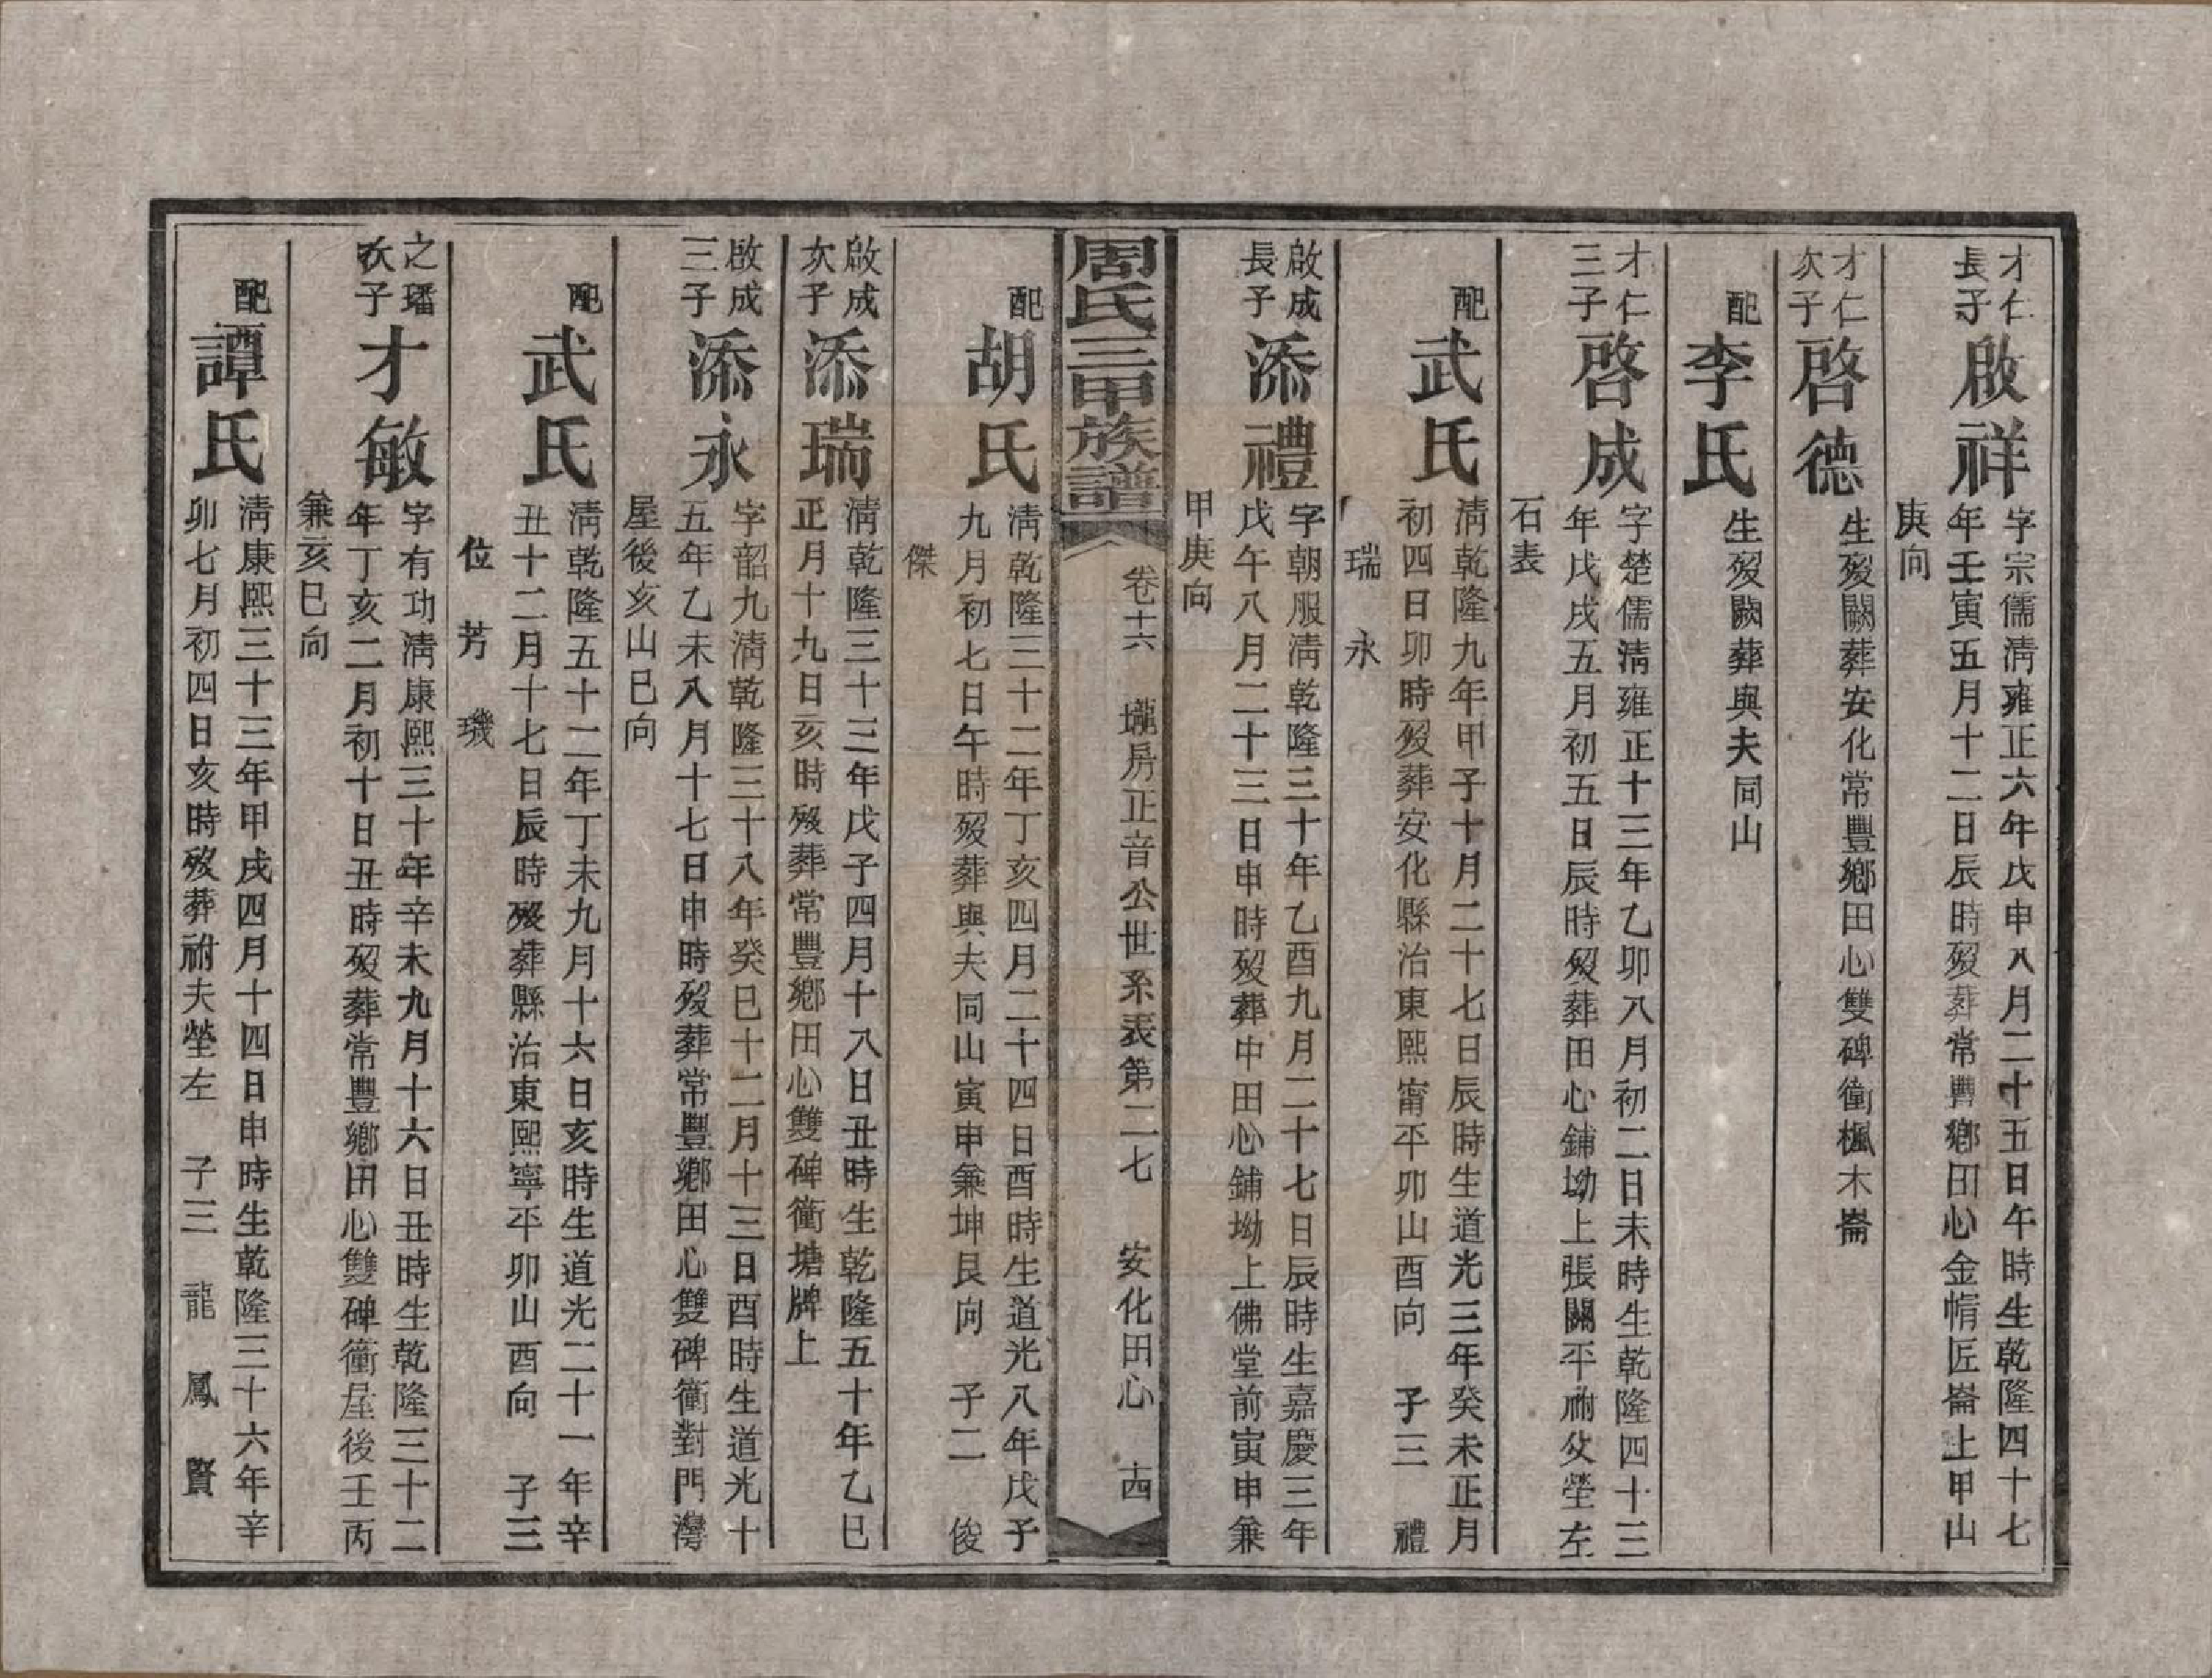 才仁
長子
啟祥
字宗儒淸雍正六年戊申八月二十五日午時生乾隆四十七
年壬寅五月十二日辰時歿葬常豐鄉田心金帽匠崙上甲山
庚向
才仁
次子
啓德
生歿闕葬安化常豐鄉田心雙碑衝楓木崙
配
李氏
生歿闕葬與夫同山
才仁
三子
啓成
字楚儒淸雍正十三年乙卯八月初二日未時生乾隆四十三
年戊戌五月初五日辰時歿葬田心鋪坳上張關平祔父塋左
石表
配
武氏
淸乾隆九年甲子十月二十七日辰時生道光三年癸未正月
初四日卯時歿葬安化縣治東熙甯平卯山酉向 子三 禮
瑞 永
啟成
長子
添禮
字朝服淸乾隆三十年乙酉九月二十七日辰時生嘉慶三年
戊午八月二十三日申時歿葬中田心鋪坳上佛堂前寅申兼
甲庚向
周氏三甲族譜
卷十六 壠房正音公世系表第二七 安化田心 十四
配
胡氏
淸乾隆三十二年丁亥四月二十四日酉時生道光八年戊子
九月初七日午時歿葬與夫同山寅申兼坤艮向 子二 俊
傑
啟成
次子
添瑞
淸乾隆三十三年戊子四月十八日丑時生乾隆五十年乙巳
正月十九日亥時歿葬常豐鄉田心雙碑衝塘牌上
啟成
三子
添永
字韶九淸乾隆三十八年癸巳十二月十三日酉時生道光十
五年乙未八月十七日申時歿葬常豐鄉田心雙碑衝對門灣
屋後亥山巳向
配
武氏
淸乾隆五十二年丁未九月十六日亥時生道光二十一年辛
丑十二月十七日辰時歿葬縣治東熙寧平卯山酉向 子三
位 芳 璣
之璠
次子
才敏
字有功淸康熙三十年辛未九月十六日丑時生乾隆三十二
年丁亥二月初十日丑時歿葬常豐鄉田心雙碑衝屋後壬丙
兼亥巳向
配
譚氏
淸康熙三十三年甲戌四月十四日申時生乾隆三十六年辛
卯七月初四日亥時歿葬祔夫塋左 子三 龍 鳳 賢